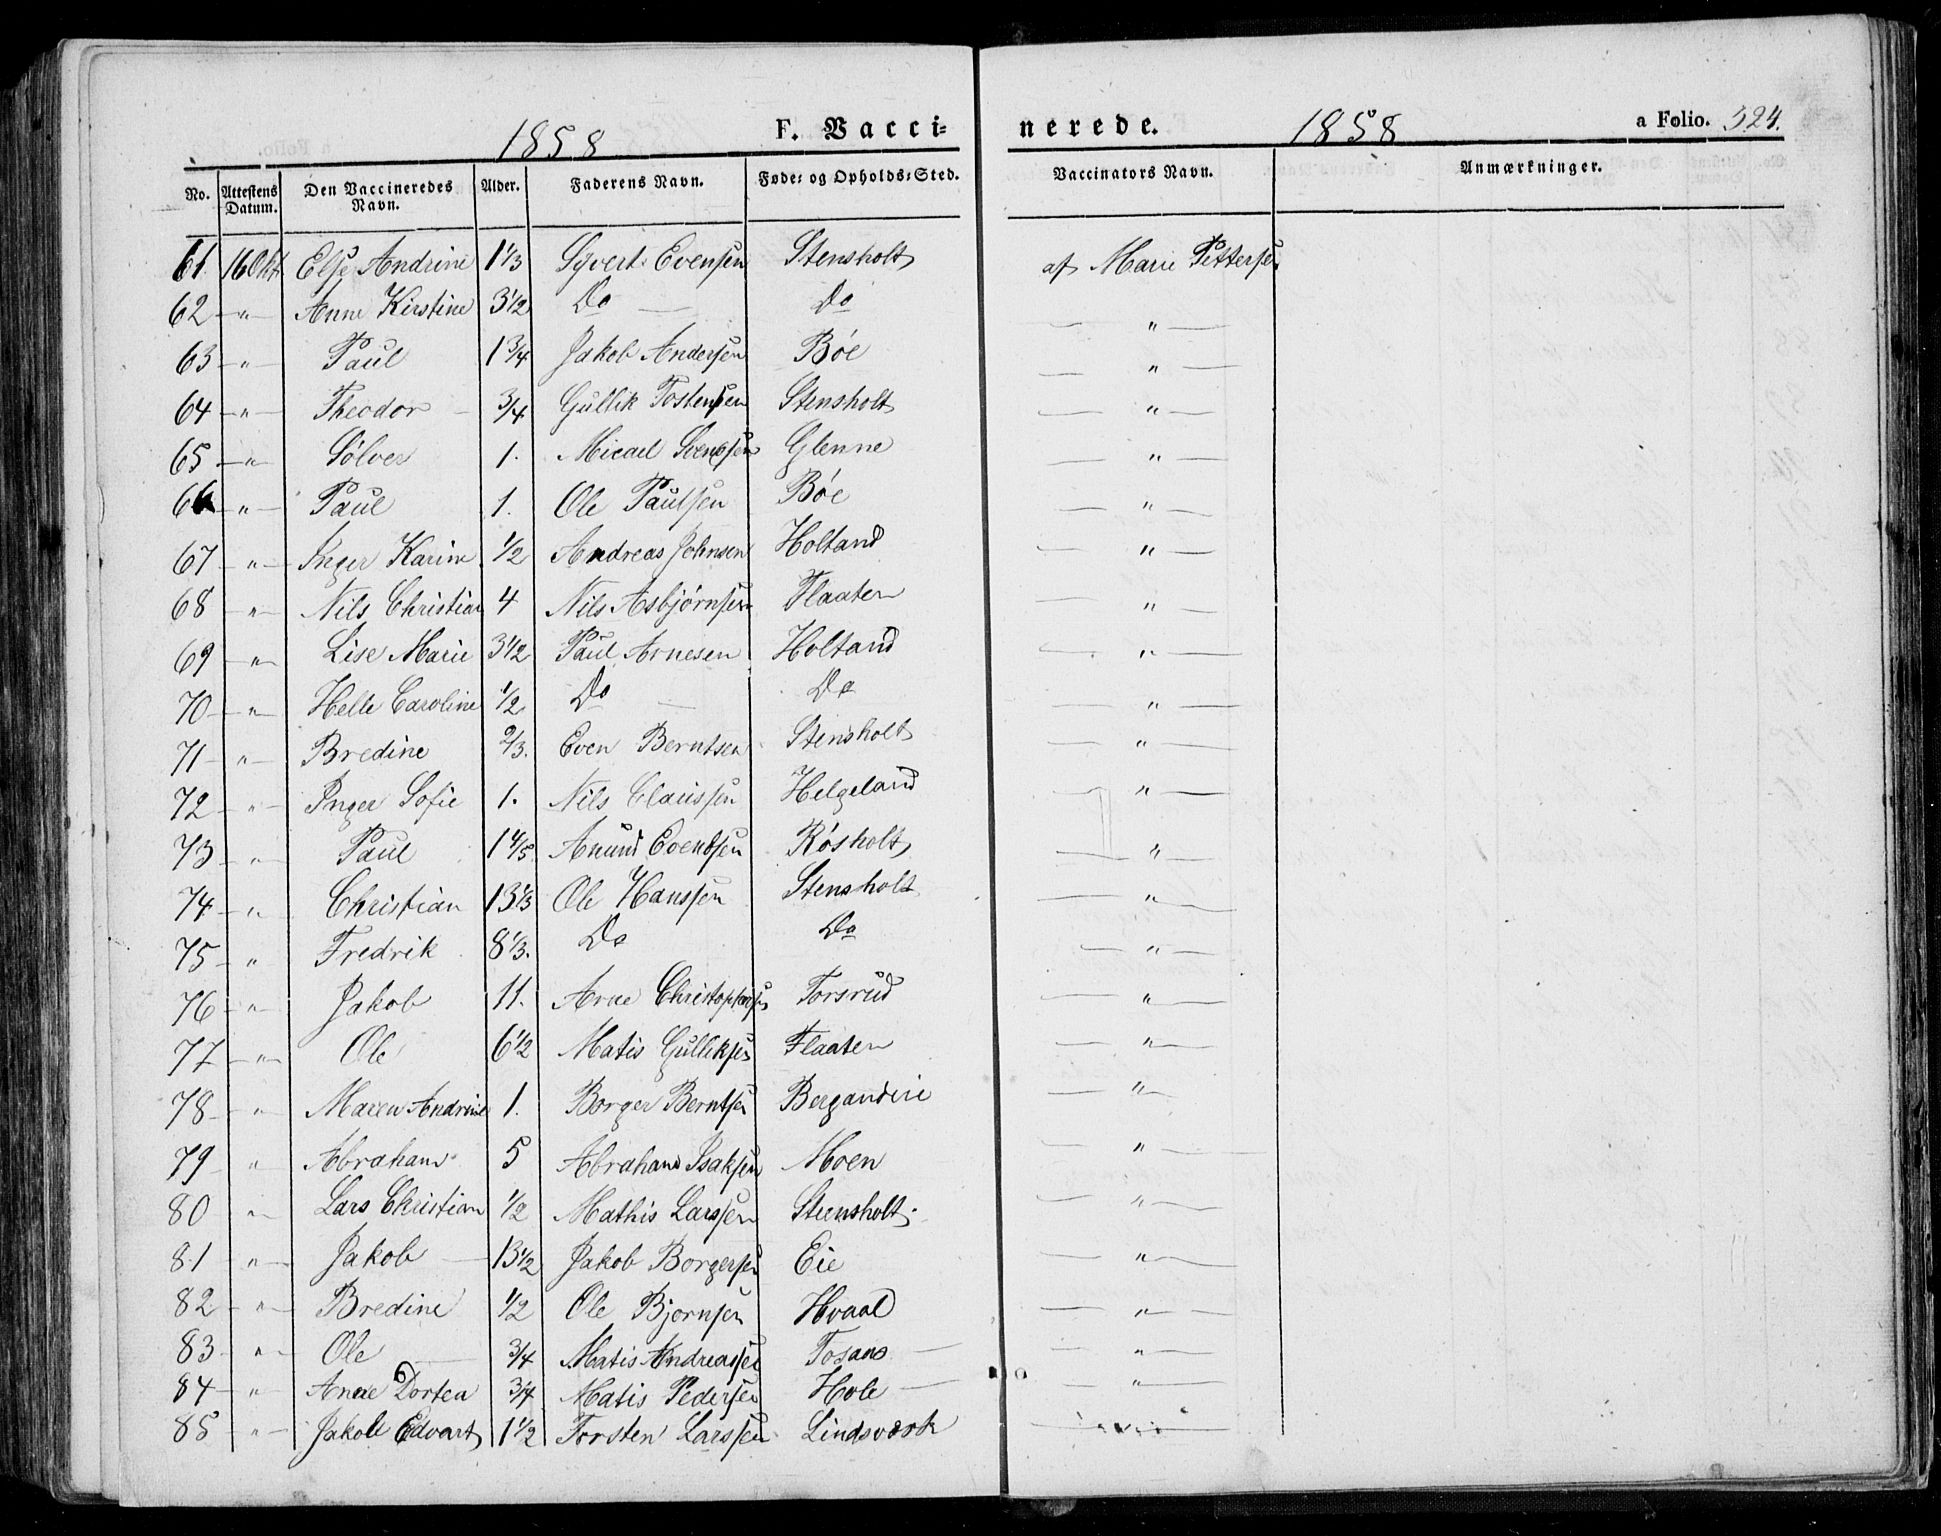 1858 F. Vacci= nerede. 1858 a Folio. 324.
No. Attestens Datum. Den Vaccineredes Navn. Alder. Faderens Navn. Føde= og Opholds=Sted. Vaccinators Navn. Anmærkninger.
61. 16 Okt Else Andrine 1 1/3 Syvert Evensen Stensholt af Marie Pettersen
62 —"— Anne Kirstine 3 1/2 Do — Do — " —
63 —"— Paul 1 3/4 Jakob Andersen Bøe — " —
64 —"— Theodor — 3/4 Gullik Tostensen Stensholt — " —
65 —"— Sølver 1. Micael Svendsen Glenne — " —
66 —"— Paul 1. Ole Paulsen Bøe — " —
67 —"— Inger Karine 1/2 Andreas Johnsen Holtand — " —
68 —"— Nils Christian 4 Nils Asbjørnsen Flaaten — " —
69 —"— Lise Marie 3 1/2 Paul Arnesen Holtand — " —
70 —"— Helle Caroline 1/2 Do — Do — " —
71 —"— Bredine 2/3. Even Berntsen Stensholt — " —
72 —"— Inger Sofie 1. Nils Claussen Helgeland — " —
73 —"— Paul 1 4/5 Anund Evensen Røsholt — " —
74 —"— Christian 13 1/3 Ole Hanssen Stensholt — " —
75 —" Fredrik 8 1/3. Do Do — " —
76 —"— Jakob 11. Arne Christophersen Torsrud — " —
77 —"— Ole 6 1/2 Matis Gulliksen Flaaten — " —
78 —"— Maren Andrine 1. Borger Berntsen Bergandeie — " —
79 — " Abraham 5 Abraham Isaksen Moen — " —
80 "— Lars Christian 1/2 Mathis Larssen Steensholt. — " —
81 "— Jakob — 13 1/2 Jakob Borgersen Eie — " —
82 —"— Bredine 1/2 Ole Bjørnsen Hvaal — " —
83 —"— Ole — 3/4 Matis Andreassen — — " —
84 — " Anne Dortea 3/4 Matis Pedersen Hole — — " —
85 "— Jakob Edvart 1 1/2 Torsten Larssen Lindsværk — " —